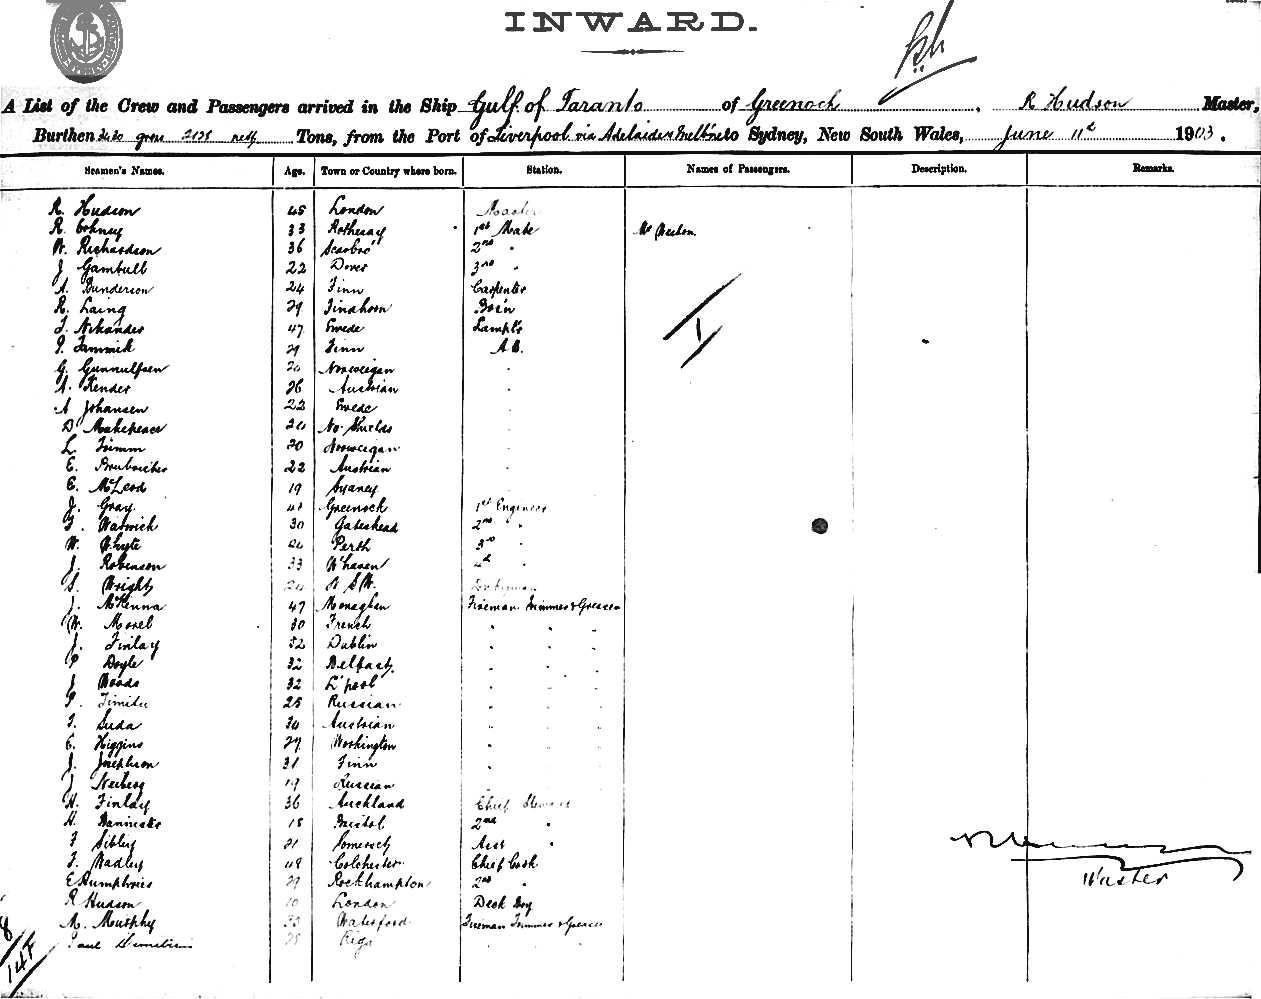 INWARD.
A List of the Crew and Passengers arrived in the Ship Gulf of Taranto of Greenoch, R Hudson Master,
Burthen gross 2128 nett Tons, from the Port of Liverpool via Adelaide & Melb'ne to Sydney, New South Wales, June 11th 1903.
Seamen's Names. Age. Town or Country where born. Station. Names of Passengers. Description. Remarks.
R. Hudson 45 London Master
R. 33 Rothesay 1st Mate Mr Weston.
W. Richardson 36 Scarbro' 2nd "
J Gambull 22 Dover 3rd "
A. Gunderson 24 Finn Carpenter
R. Laing 29 Findhorn Bos'n
J. Nikander 47 Swede Lamp's
J. Jammik 29 Finn A.B.
G. Gunnulfsen Norwegian "
A. Kender 26 Austrian "
A Johansen 22 Swede "
D Makepeace No. Shields "
L. Timm 20 Norwegian "
E. 22 Austrian "
E. McLeod 19 Sydney "
J. Gray. Greenock 1st Engineer
J. Warwick 30 Gateshead 2nd "
W. Whyte Perth 3rd "
J. Robinson 33 W'haven 4th "
S. Wright N S W.
J. McKenna 47 Monaghan Fireman Trimmer & Greaser
W. Morel 30 French " " "
J. Finlay 32 Dublin " " "
P Doyle 32 Belfast " " "
J Woods 32 L'pool " " "
P. 25 Russian " " "
J. Suda Austrian " " "
E. Higgins 29 Washington " " "
J. Josephson 31 Finn " " "
J Neiberg 19 Russian " " "
H. Finlay 36 Auckland Chief Steward
H. Bannister 18 Bristol 2nd "
J Sibley 21 Somerset Asst "
J. Wadley 48 Colchester Chief Cook
E Humphries 29 Rockhampton 2nd "
R Hudson 10 London Deck Boy
M. Murphy 33 Waterford Fireman Trimmer & Greaser
Paul Riga
1
Master
8/147